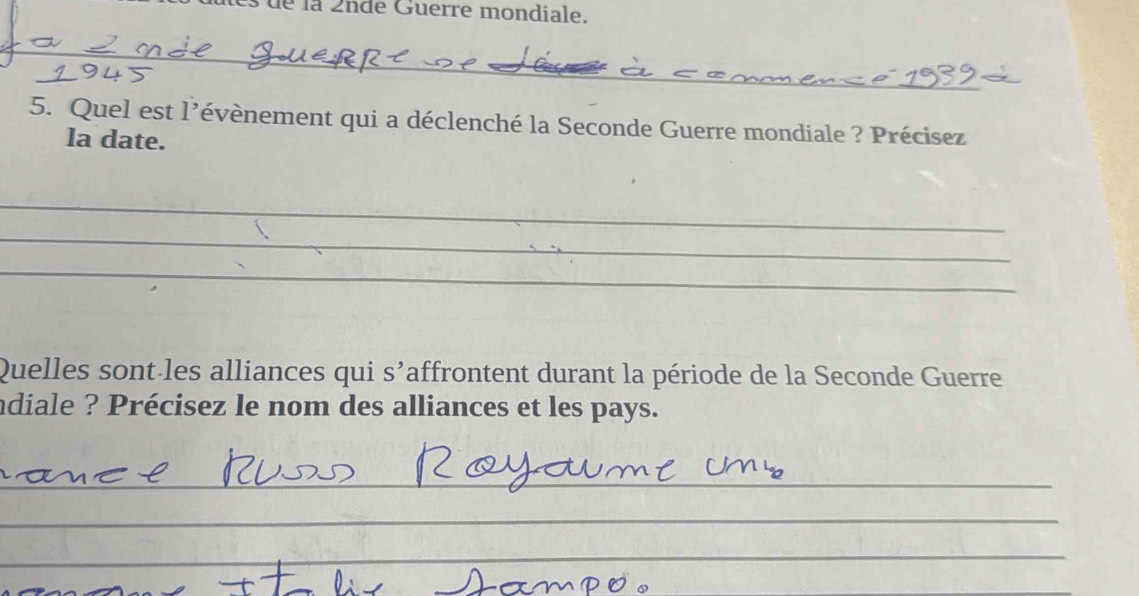 de la 2nde Guerre mondiale.
La 2 nde guerre se à commencé 1939 à
1945
5. Quel est l'évènement qui a déclenché la Seconde Guerre mondiale ? Précisez
la date.
Quelles sont les alliances qui s'affrontent durant la période de la Seconde Guerre
ndiale ? Précisez le nom des alliances et les pays.
rance Russ Royaume
Italie